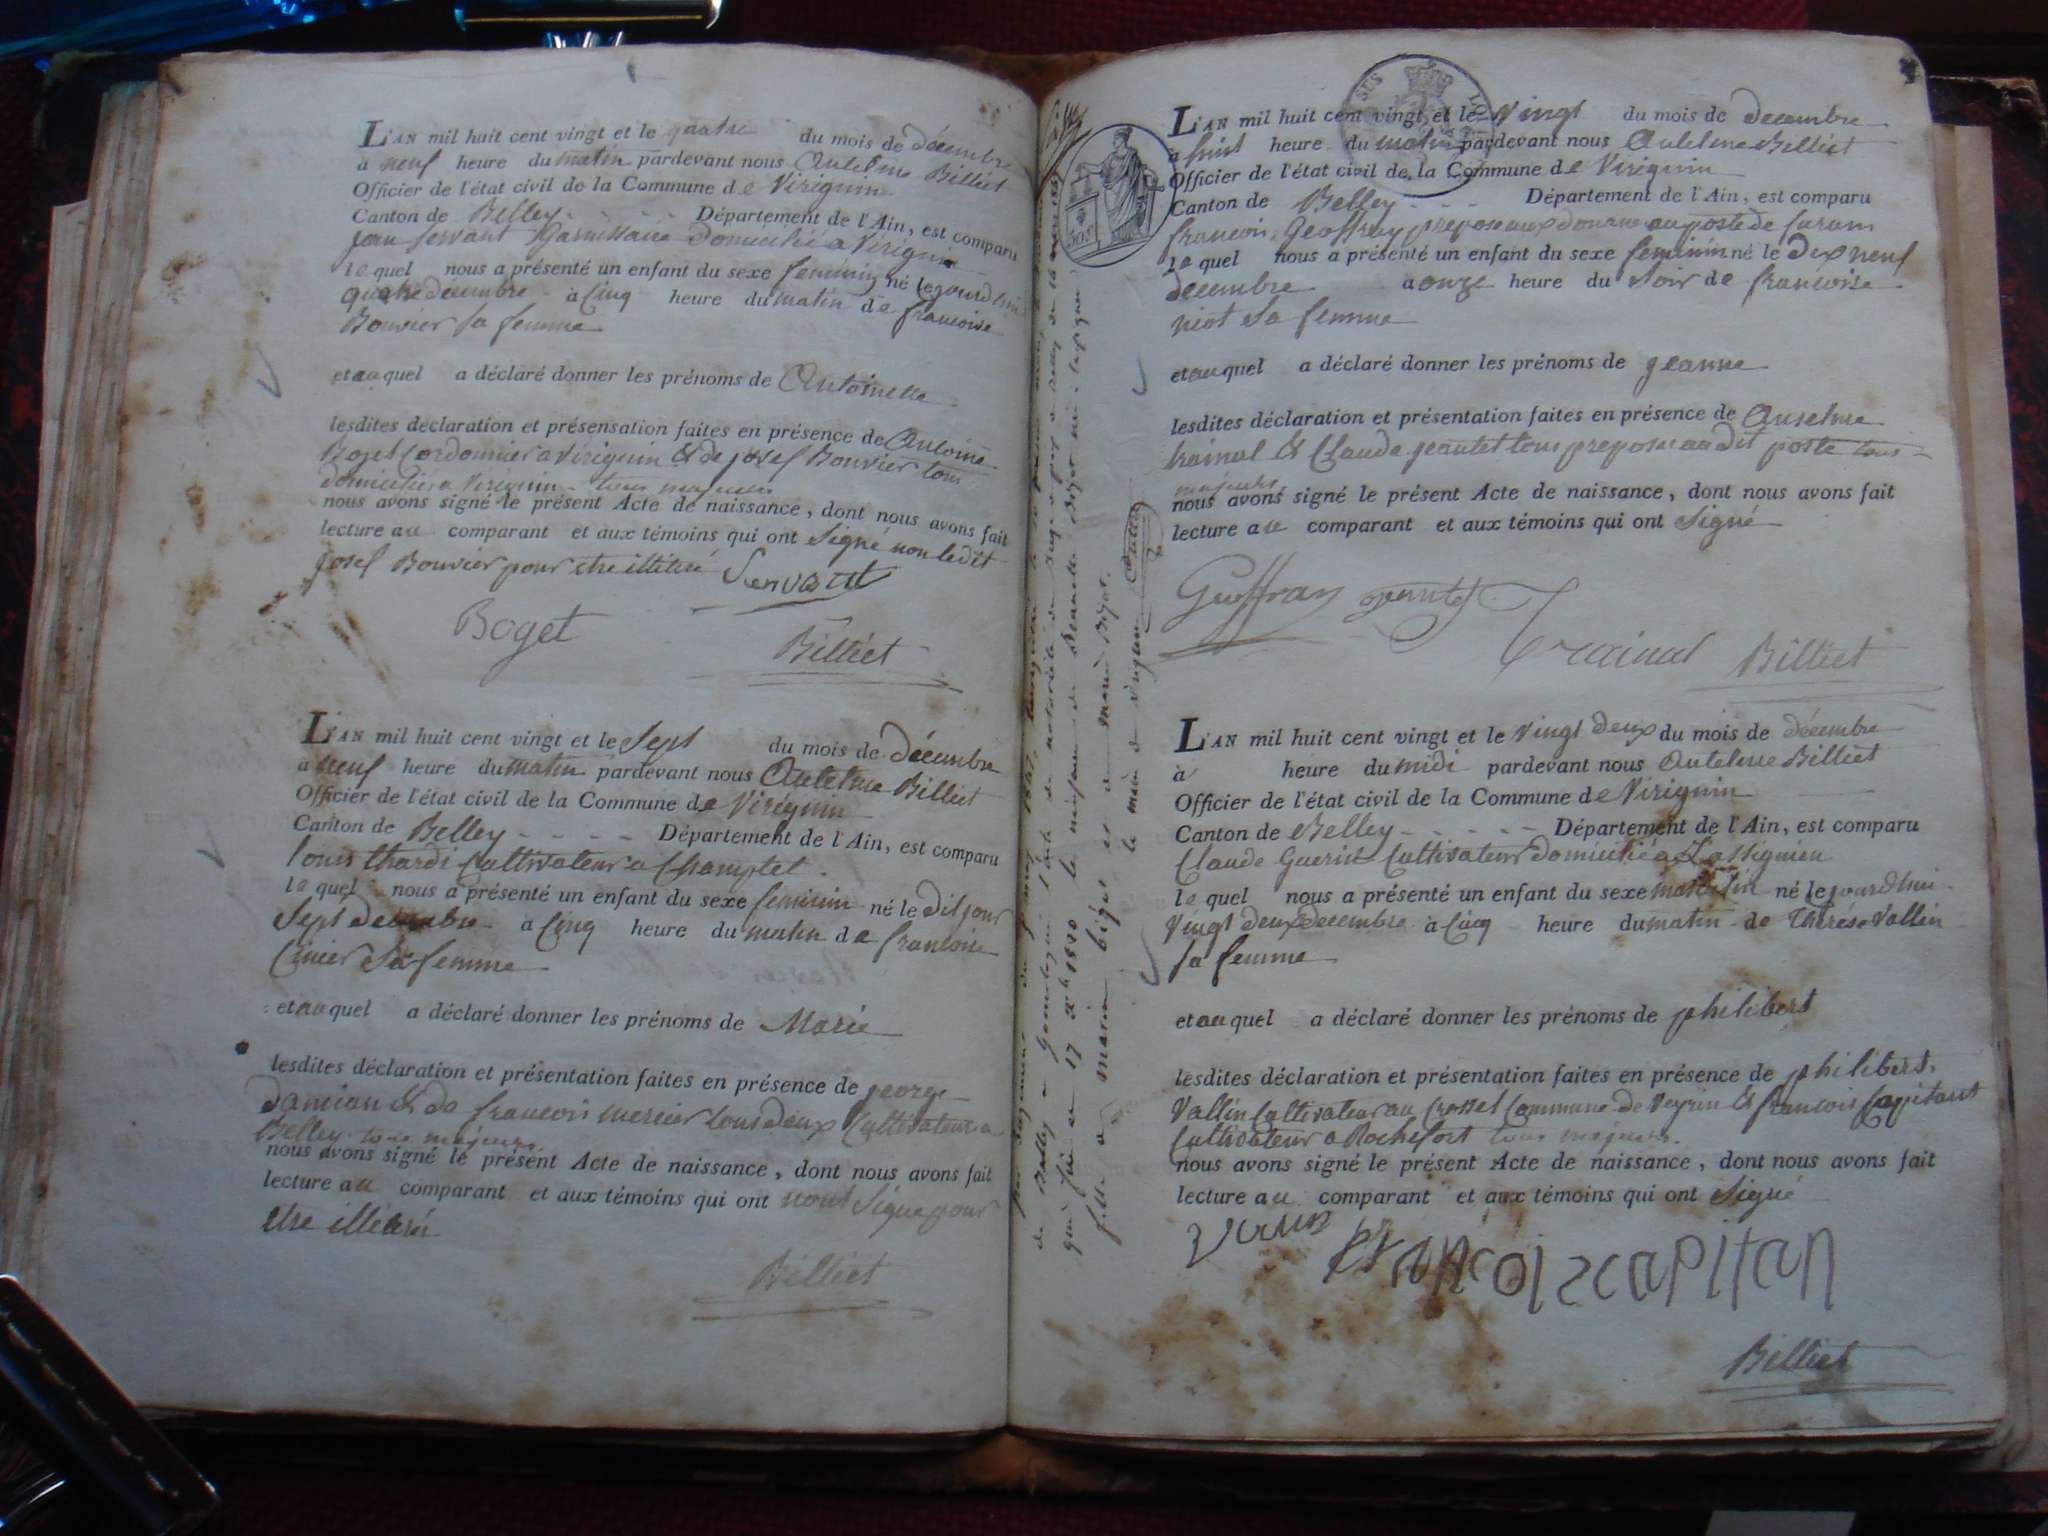 L'AN mil huit cent vingt et le quatre du mois de décembre
à neuf heure du matin pardevant nous Antelme Billiet
Officier de l'état civil de la Commune de Virignin
Canton de Belley - - - - Département de l'Ain, est comparu
jean Servant Garnissaire domicilié a Virignin
lequel nous a présenté un enfant du sexe feminin né le jourd'hui
quatre decembre à Cinq heure du matin de francoise
Bouvier sa femme
et auquel a déclaré donner les prénoms de Antoinette
lesdites déclaration et présensation faites en présence de Antoine
Boget Cordonnier a Virignin & de josef Bouvier tous
domiciliés a Virignin - tous majeurs
nous avons signé le présent Acte de naissance, dont nous avons fait
lecture au comparant et aux témoins qui ont Signé non ledit
josef Bouvier pour etre illitéré Servant
Boget
Billiet
L'AN mil huit cent vingt et le Sept du mois de décembre
à neuf heure du matin pardevant nous Antelme Billiet
Officier de l'état civil de la Commune de Virignin
Canton de Belley - - - - Département de l'Ain, est comparu
louis thardi Cultivateur a Champtel
lequel nous a présenté un enfant du sexe feminin né le dit jour
Sept decembre à Cinq heure du matin de francoise
Cinier Sa femme
et auquel a déclaré donner les prénoms de Marie
lesdites déclaration et présentation faites en présence de george
damian & de francois mercier tous deux Cultivateur a
Belley tous majeurs
nous avons signé le présent Acte de naissance, dont nous avons fait
lecture au comparant et aux témoins qui ont nont Signé pour
etre illéteré
Billiet
de Belley a
qui fixe au 17 1820 la naissance de Jeannette Bigot
fille a marin bigot et de marie Bigot.
le maire de virignin
L'AN mil huit cent vingt et le Vingt du mois de decembre
à huit heure du matin pardevant nous Antelme Billiet
Officier de l'état civil de la Commune de Virignin
Canton de Belley - - Département de l'Ain, est comparu
francois Geoffray preposé aux douane au poste de
lequel nous a présenté un enfant du sexe feminin né le dix neuf
decembre à onze heure du Soir de francoise
niot Sa femme
et auquel a déclaré donner les prénoms de jeanne
lesdites déclaration et présentation faites en présence de Anselme
trainal & Claude jeantet tous preposé au dit poste tous
majeurs
nous avons signé le présent Acte de naissance, dont nous avons fait
lecture au comparant et aux témoins qui ont Signé
Geoffray jeantet
Trainal Billiet
L'AN mil huit cent vingt et le Vingt deux du mois de décembre
à heure du midi pardevant nous Antelme Billiet
Officier de l'état civil de la Commune de Virignin
Canton de Belley - - - - Département de l'Ain, est comparu
Claude Guerin Cultivateur domicilié a Lassignieu
lequel nous a présenté un enfant du sexe masculin né le jourdhui
Vingt deux decembre à Cinq heure du matin de Thérése Vallin
sa femme
et auquel a déclaré donner les prénoms de philibert
lesdites déclaration et présentation faites en présence de philibert
Vallin Cultivateur au Crosset Commune de Veyrin & francois Capitant
Cultivateur a Rochefort tous majeurs.
nous avons signé le présent Acte de naissance, dont nous avons fait
lecture au comparant et aux témoins qui ont Signé
francoiscapitan
Billiet